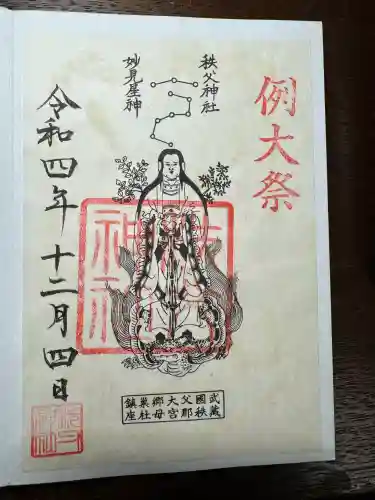 例大祭
秩父神社
妙見星神
令和四年十二月四日
武蔵
國秩
父郡
大宮
郷母
巣杜
鎮座